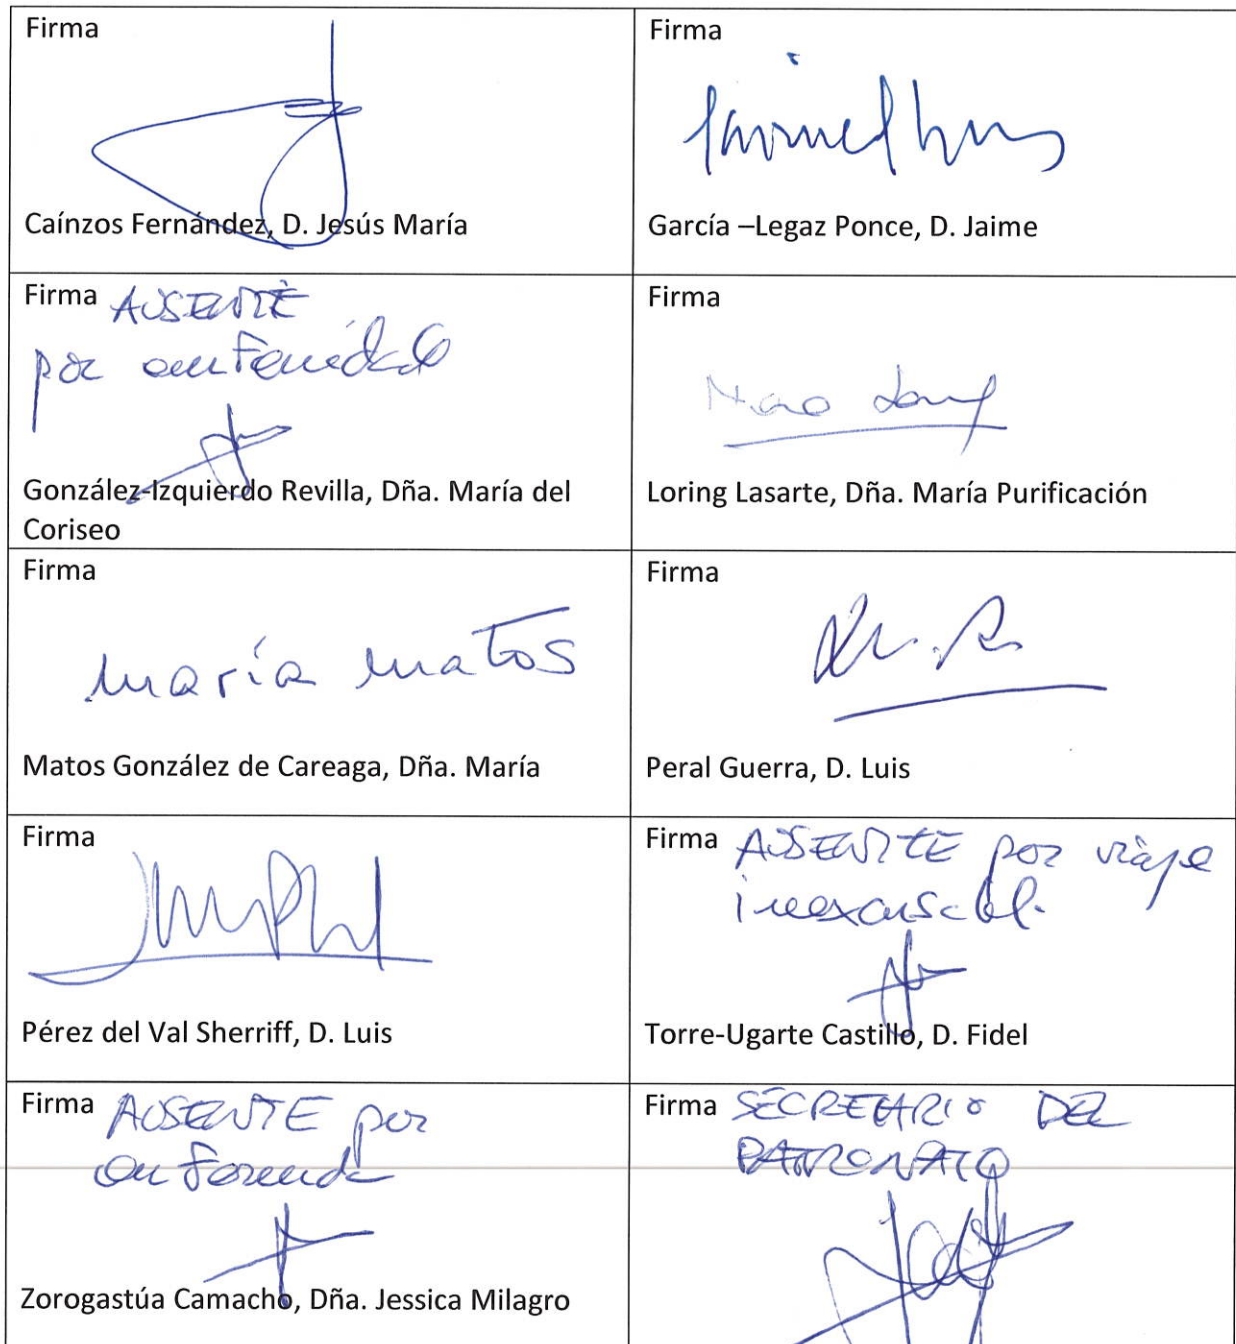 Firma
Caínzos Fernández, D. Jesús María
Firma
García –Legaz Ponce, D. Jaime
Firma AUSENTE
por enfermedad
González-Izquierdo Revilla, Dña. María del
Coriseo
Firma
Loring Lasarte, Dña. María Purificación
Firma
maría matos
Matos González de Careaga, Dña. María
Firma
Peral Guerra, D. Luis
Firma
Pérez del Val Sherriff, D. Luis
Firma AUSENTE por viaje
inexcusable
Torre-Ugarte Castillo, D. Fidel
Firma AUSENTE por
enfermedad
Zorogastúa Camacho, Dña. Jessica Milagro
Firma SECRETARIO DEL
PATRONATO